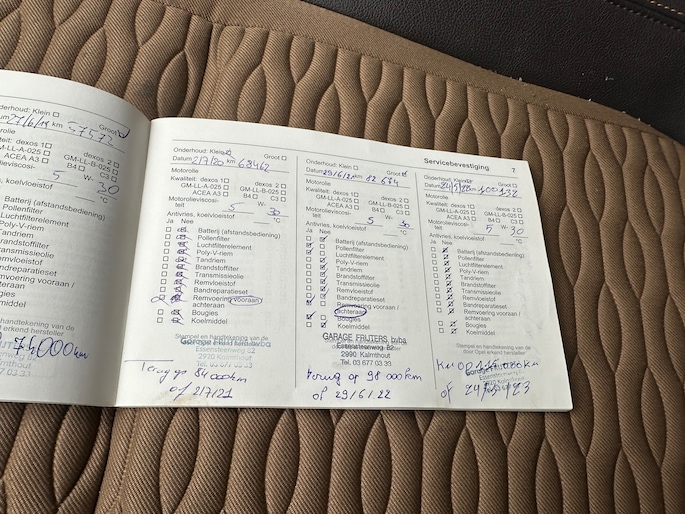 nderhoud: Klein
um 27/6/19 km 57573 Groot
rolie
liteit: dexos 1 dexos 2
GM-LL-A-025 GM-LL-B-025
ACEA A3 B4 C3
lieviscosi-
5 W- 30
ies, koelvloeistof °C
Nee
Batterij (afstandsbediening)
Pollenfilter
Luchtfilterelement
Poly-V-riem
Tandriem
Brandstoffilter
Transmissieolie
Remvloeistof
Bandreparatieset
Remvoering vooraan /
achteraan
Bougies
Koelmiddel
handtekening van de
erkend hersteller
74000 km
Onderhoud: Klein Groot
Datum 2/7/20 km 68462
Motorolie
Kwaliteit: dexos 1 dexos 2
GM-LL-A-025 GM-LL-B-025
ACEA A3 B4 C3
Motorolieviscosi-
teit 5 W- 30
Antivries, koelvloeistof °C
Ja Nee
Batterij (afstandsbediening)
Pollenfilter
Luchtfilterelement
Poly-V-riem
Tandriem
Brandstoffilter
Transmissieolie
Remvloeistof
Bandreparatieset
Remvoering vooraan /
achteraan
Bougies
Koelmiddel
Stempel en handtekening van de
Essensteenweg 62
2920 Kalmthout
Tel. 03
Terug op 84 000 km
of 2/7/21
Servicebevestiging 7
Onderhoud: Klein Groot
Datum 29/6/21 km 82 674
Motorolie
Kwaliteit: dexos 1 dexos 2
GM-LL-A-025 GM-LL-B-025
ACEA A3 B4 C3
Motorolieviscosi-
teit 5 W- 30
Antivries, koelvloeistof °C
Ja Nee
Batterij (afstandsbediening)
Pollenfilter
Luchtfilterelement
Poly-V-riem
Tandriem
Brandstoffilter
Transmissieolie
Remvloeistof
Bandreparatieset
Remvoering vooraan /
achteraan
Bougies
Koelmiddel
GARAGE FRIJTERS bvba
Essensteenweg 62
2990 Kalmthout
Tel. 03 677 03 33
terug op 98 000 km
of 29/6/22
Onderhoud: Klein Groot
Datum km 100132
Motorolie
Kwaliteit: dexos 1 dexos 2
GM-LL-A-025 GM-LL-B-025
ACEA A3 B4 C3
Motorolieviscosi-
teit 5 W- 30
Antivries, koelvloeistof °C
Ja Nee
Batterij (afstandsbediening)
Pollenfilter
Luchtfilterelement
Poly-V-riem
Tandriem
Brandstoffilter
Transmissieolie
Remvloeistof
Bandreparatieset
Remvoering vooraan /
achteraan
Bougies
Koelmiddel
Stempel en handtekening van de
door Opel erkend hersteller